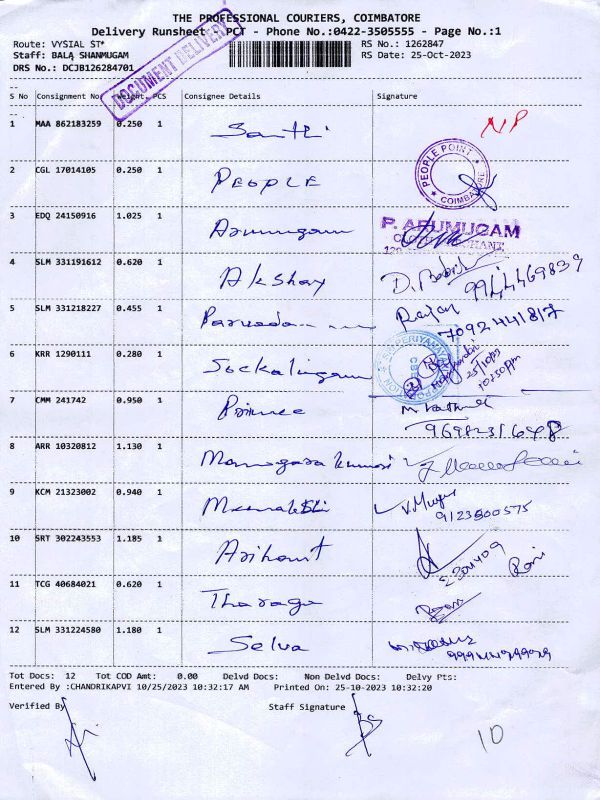 THE PROFESSIONAL COURIERS, COIMBATORE
Delivery Runsheet - PCT - Phone No.:0422-3505555 - Page No.:1
Route: VYSIAL ST*
RS No.: 1262847
Staff: BALA SHANMUGAM
RS Date: 25-Oct-2023
DRS No.: DCJB126284701
DOCUMENT DELIVERY
S No Consignment No Weight. PCS Consignee Details Signature
1 MAA 862183259 0.250 1 Santhi NP
2 CGL 17014105 0.250 1 PEOPLE
PEOPLE POINT COIMBATORE
3 EDQ 24150916 1.025 1 Arumugam
P. ARUMUGAM
4 SLM 331191612 0.620 1 Akshay
5 SLM 331218227 0.455 1 Rajan
7092441817
6 KRR 1290111 0.280 1 Sockalingam
25/10/23
7 CMM 241742 0.950 1 Prince
8 ARR 10320812 1.130 1
9 KCM 21323002 0.940 1 Meenakshi
9123500575
10 SRT 302243553 1.185 1 Arihant
11 TCG 40684021 0.620 1
12 SLM 331224580 1.180 1 Selva
Tot Docs: 12 Tot COD Amt: 0.00 Delvd Docs: Non Delvd Docs: Delvy Pts:
Entered By :CHANDRIKAPVI 10/25/2023 10:32:17 AM Printed On: 25-10-2023 10:32:20
Verified By Staff Signature
10